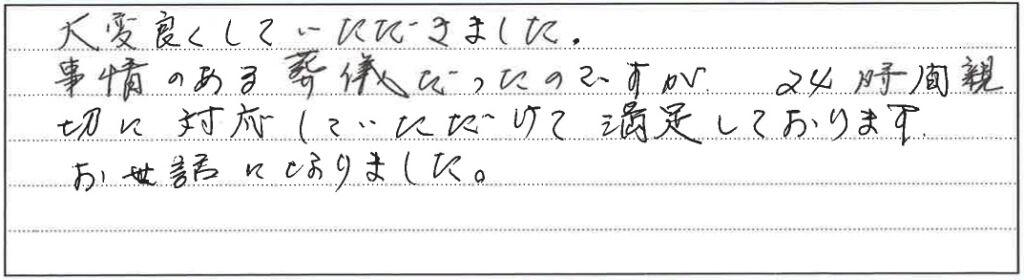 大変良くしていただきました.
事情のある葬儀だったのですが. 24時間親
切に対応していただけて満足しております.
お世話になりました。